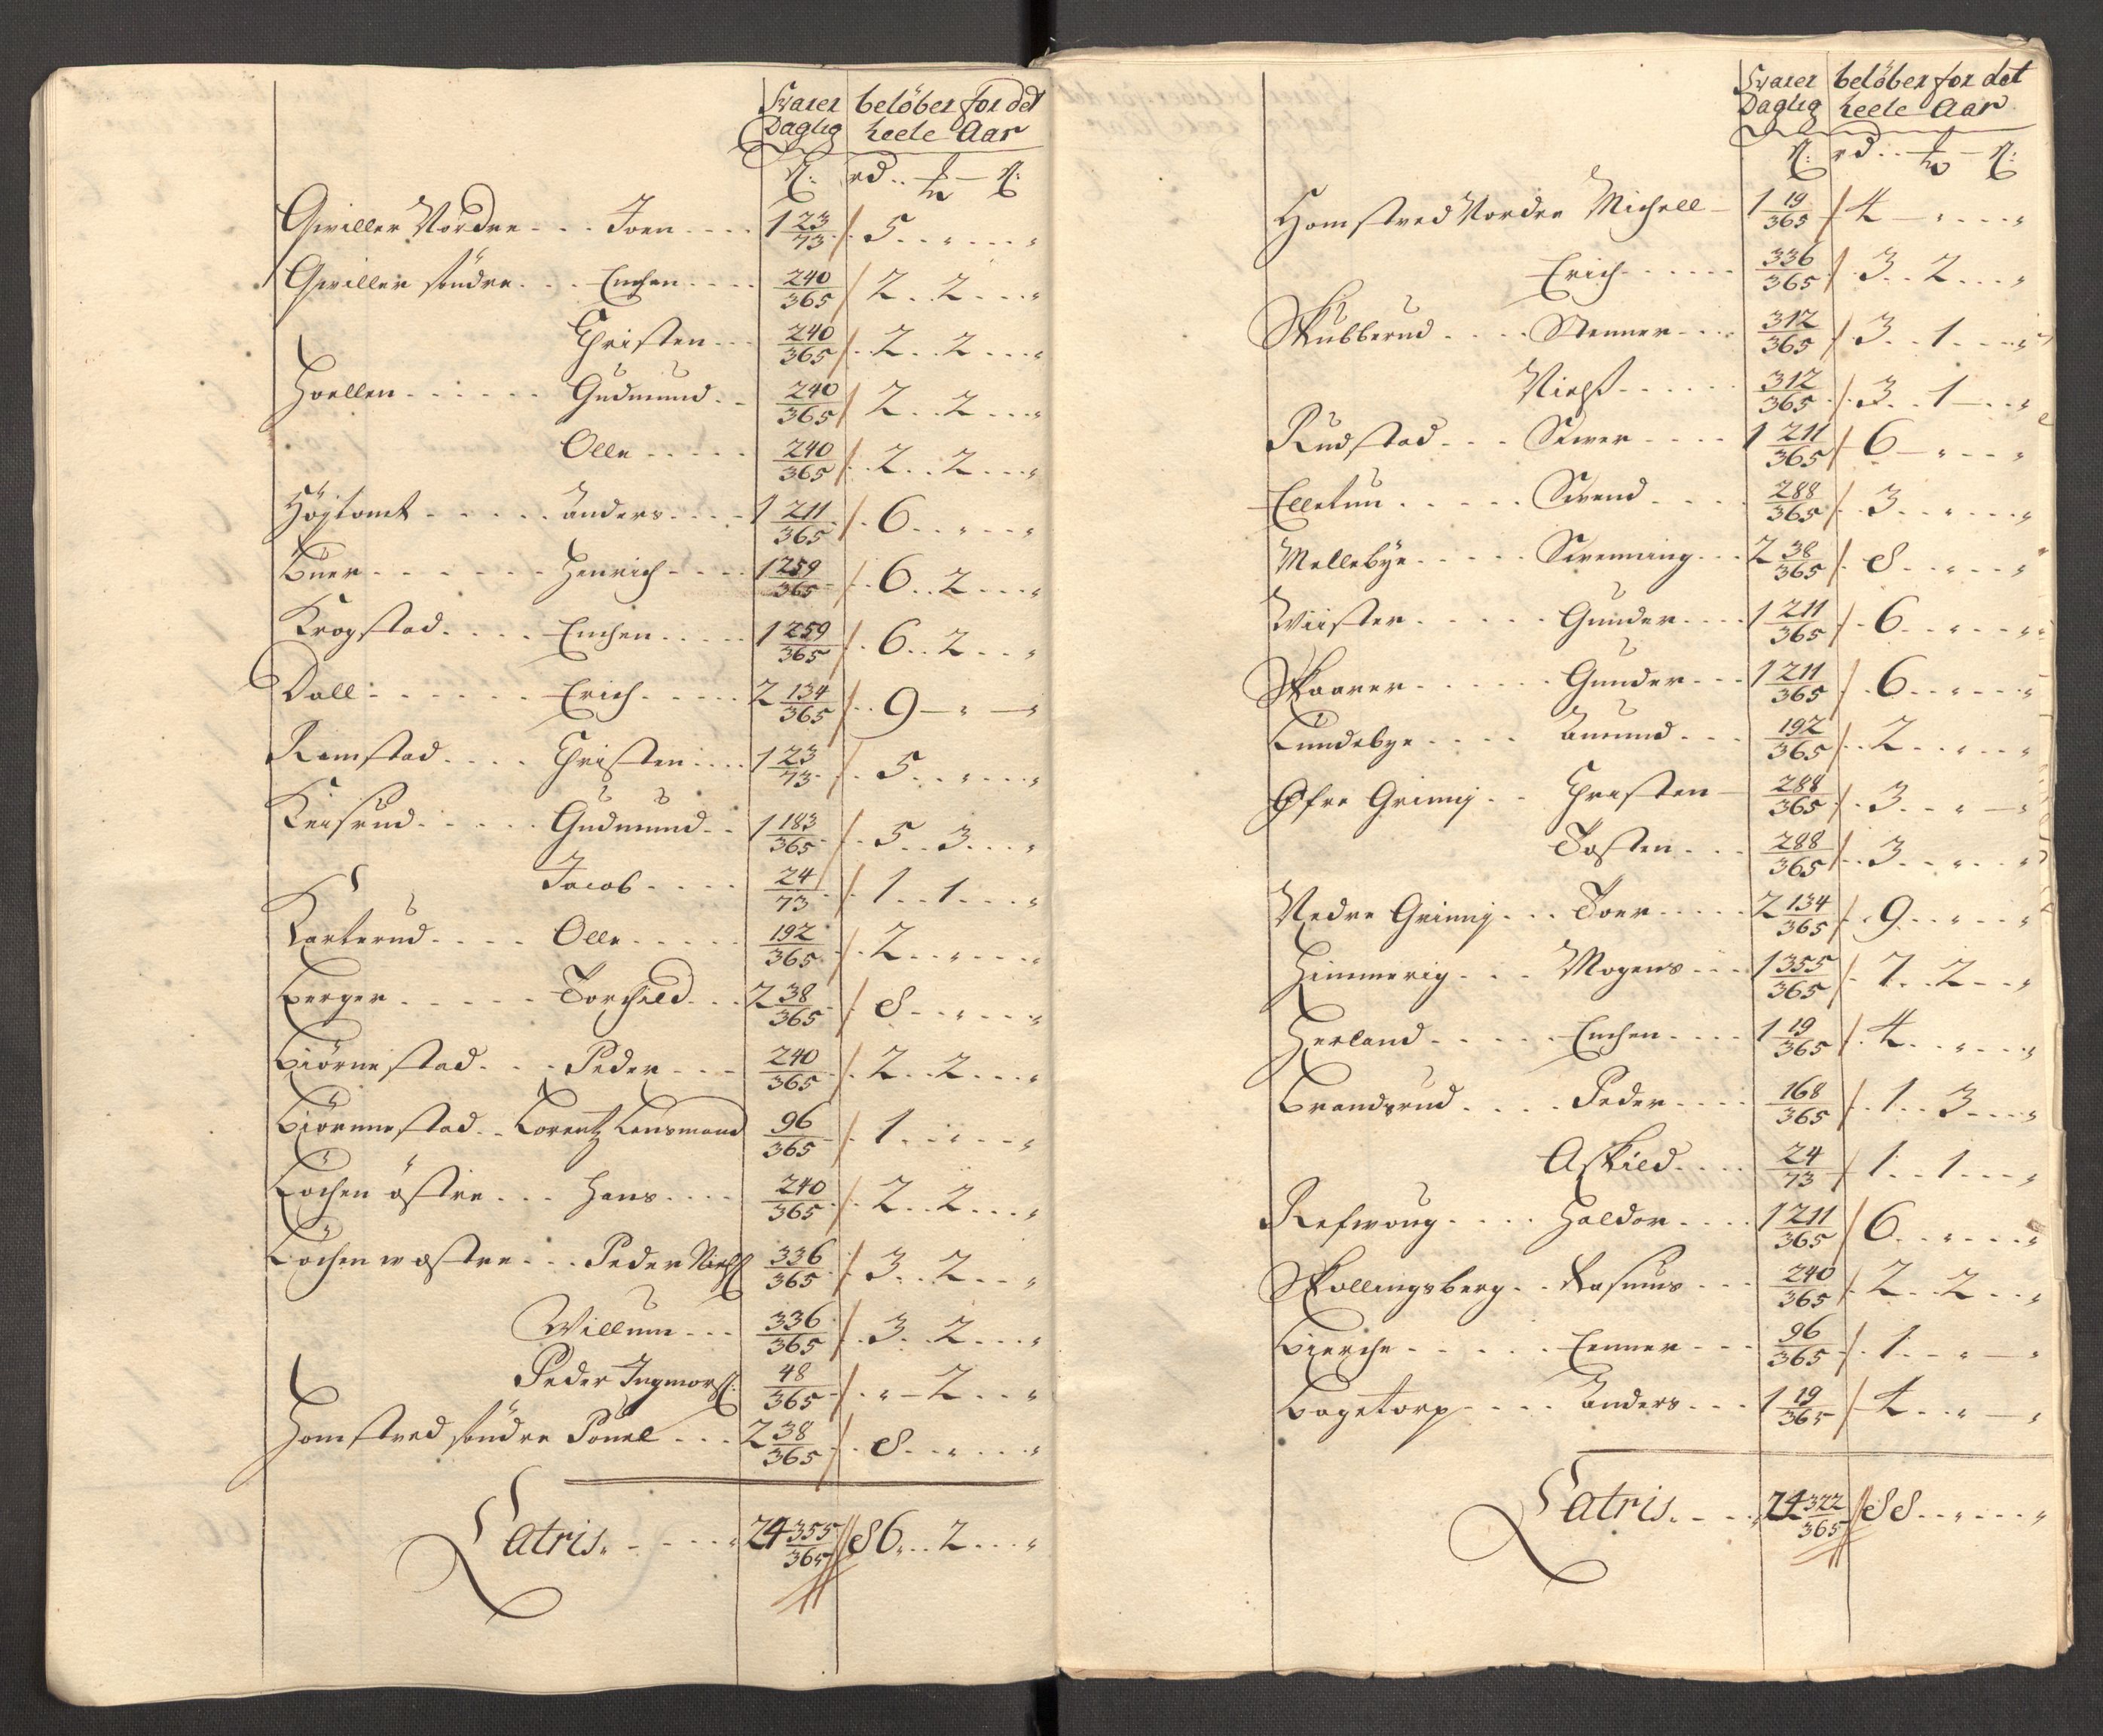 Svarer beløber for det
Daglig heele Aar
ß: rd.. - ß:
Gwiller Nordre - - - Joen - - - - 1 23/73 5 - - " - - - "
Gwiller søndre - - - Enchen - - - - 240/365 2 - - 2 - - - "
Christen - - - 240/365 2 - - 2 - - - "
Hoellen - - - - - - Gudmund - - 240/365 2 - - 2 - - - "
Olle - - - - - 240/365 2 - - 2 - - - "
Høytomt - - - - - Anders - - - - 1 211/365 6 - - " - - - "
Buer - - - - - - - Henrich - - - - 1 259/365 6 - - 2 - - - "
Krogstad - - - - Enchen - - - - - 1 259/365 6 - - 2 - - - "
Dall - - - - - - Erich - - - - - 2 134/365 9 - " - "
Ramstad - - - - Christen - - - - 1 23/73 5 - - " - - - "
Keisrud - - - - - Gudmund - - 1 183/365 5 - - 3 - - - "
Jacob - - - - 24/73 1 - - 1 - - - "
Karterud - - - - Olle - - - - - 192/365 2 - - " - - - "
Berger - - - - - Torchild - - - 2 38/365 8 - - " - - - "
Biørnestad - - - Peder - - - 240/365 2 - - 2 - - - "
Biørnnestad - - Lorentz Lensmand 96/365 1 - - " - - - "
Løchen østre - - - Hans - - - - 240/365 2 - - 2 - - - "
Løchen westre - - - Peder Nielß 336/365 3 - - 2 - - - "
Willum - - - 336/365 3 - - 2 - - - "
Peder Ingmorß: 48/365 " - 2 - - - "
Homstved søndre Pouel - - - 2 38/365 8 - - " - - - "
Latris. - - - - " 24 355/365 86 - - 2 - - - "
Svarer beløber for det
Daglig heele Aar
ß: rd.. - ß:
Homstved Nordre Michell - 1 19/365 4 - " - - - "
Erich - - - - - - 336/365 3 - - 2 - - - "
Skubberud - - - - Stenner - - - 312/365 3 - - 1 - - - "
Nielß - - - - - - 312/365 3 - - 1 - - - "
Rudstad - - - Siwer - - - - 1 211/365 6 - " - - - "
Elletun - - - - - Swend - - - - 288/365 3 - - " - - - "
Mellebye - - - - - Swenning - - - 2 38/365 8 - - " - - - "
Wiister - - - - - - Gunder - - - - 1 211/365 6 - - " - - - "
Skaarer - - - - - - Gunder - - - 1 211/365 6 - - " - - - "
Lundebye - - - - Amund - - - 192/365 2 - - " - - - "
Øfre Grimij - - Christen - 288/365 3 - - " - "
Tosten - - - 288/365 3 - - " - - - "
Nedre Grimij - - - Toer - - - - - 2 134/365 9 - - " - - - "
Himmerig - - - Mogens - - - 1 355/365 7 - - 2 - - - "
Herland - - - - - Enchen - - - - 1 19/365 4 - - " - - - "
Brandsrud - - - - Peder - - - - 168/365 1 - - 3 - - - "
Askild - - - - 24/73 1 - - 1 - - - "
Refwoug - - - - Haldor - - - - 1 211/365 6 - - " - - - "
Skollingsberg - - Rasmus - - - 240/365 2 - - 2 - - - "
Bierche - - - - - Enner - - - 96/365 1 - - " - "
Bogetorp - - - - Anders - - - 1 19/365 4 - - " - "
Latris. - - - " 24 322/365 88 - - " - - - "